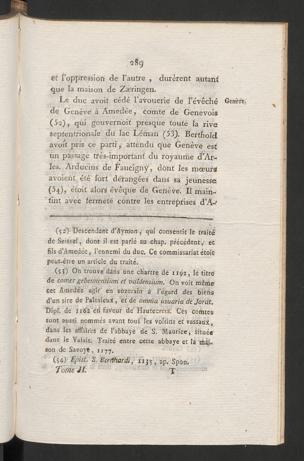 289
et l'oppression de l'autre, durèrent autant
que la maison de Zæringen.
Le duc avoit cédé l'avouerie de l'évêché
Genève.
de Genève à Amedée, comte de Genevois
(52), qui gouvernoit presque toute la rive
septentrionale du lac Léman (53). Berthold
avoit pris ce parti, attendu que Genève est
un passage très-important du royaume d'Ar-
les. Arducius de Faucigny, dont les mœurs
avoient été fort dérangées dans sa jeunesse
(54), étoit alors évêque de Genève. Il main-
tint avec fermeté contre les entreprises d'A-
(52) Descendant d'Aymon, qui consentit le traité
de Seissel, dont il est parlé au chap. précédent, et
fils d'Amedée, l'ennemi du duc. Ce commissariat étoit
peut-être un article du traité.
(53) On trouve dans une chartre de 1192, le titre
de comes gebennensium et valdensium. On voit même
cet Amedée agir en souverain à l'égard des biens
d'un site de Palésieux, et de omnia usuaria de Jorat.
Dipl. de 1162 en faveur de Hautecrest. Ces comtes
sont aussi nommés avant tous les voisins et vassaux,
dans les affaires de l'abbaye de S. Maurice, située
dans le Valais. Traité entre cette abbaye et la mai-
son de Savoye, 1177.
(54) Epist. S. Bernhardi, 1135, ap. Spon.
Tome II. T